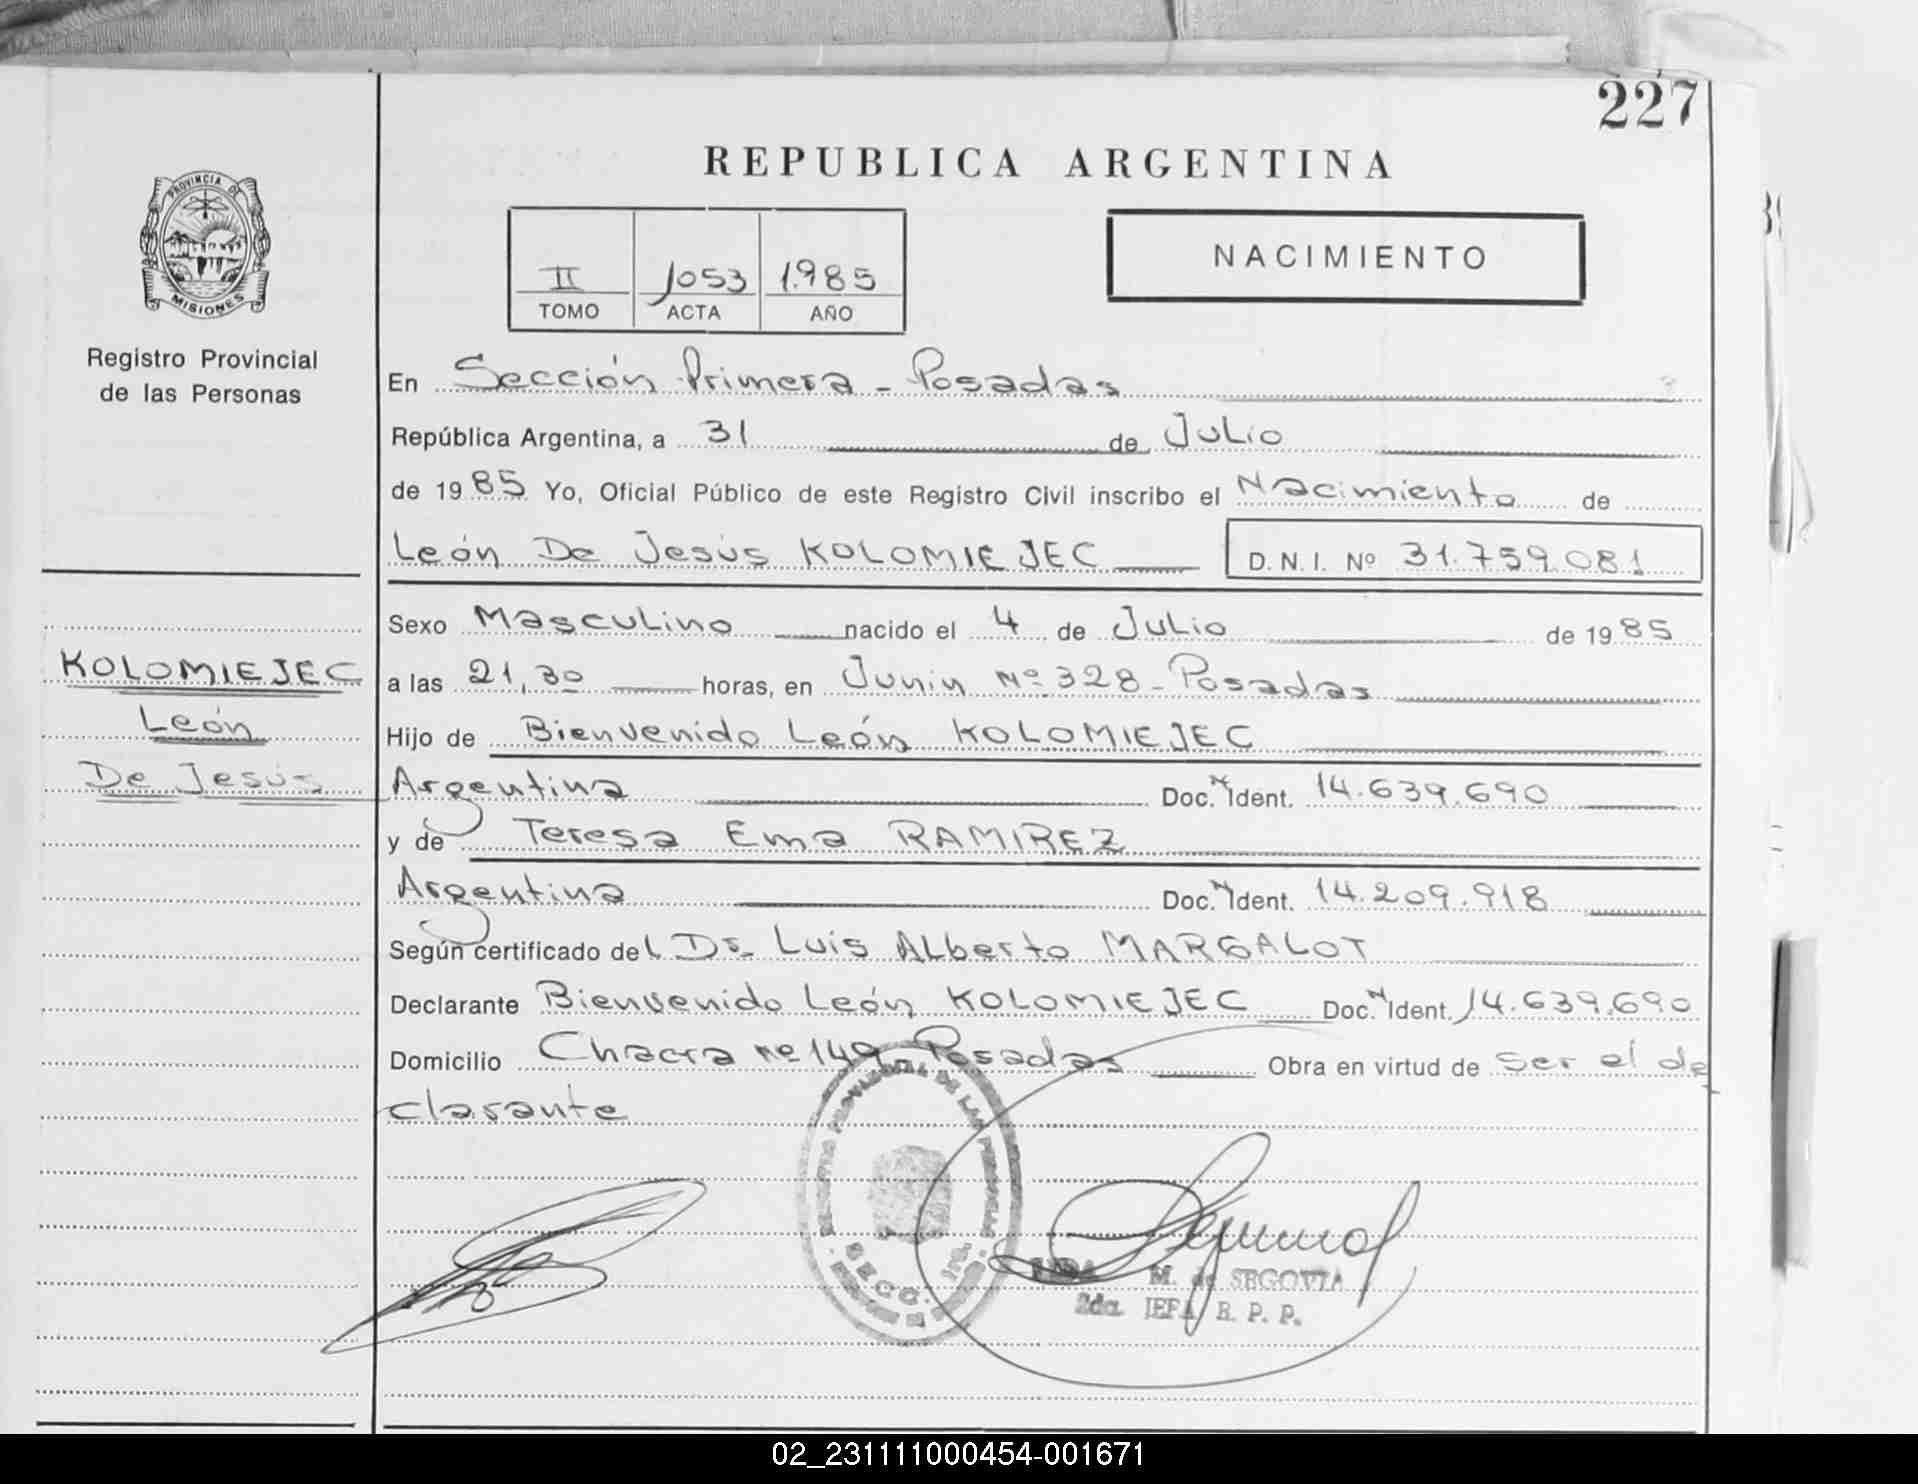 227
REPUBLICA ARGENTINA
PROVINCIA DE
MISIONES
Registro Provincial
de las Personas
II 1053 1.985
TOMO ACTA AÑO
NACIMIENTO
En Sección Primera - Posadas
República Argentina, a 31 de Julio
de 1985 Yo, Oficial Público de este Registro Civil inscribo el Nacimiento de
León De Jesús KOLOMIEJEC D.N.I. Nº 31.759.081
Sexo Masculino nacido el 4 de Julio de 1985
KOLOMIEJEC
León
De Jesús
a las 21,30 horas, en Junin Nº 328 - Posadas
Hijo de Bienvenido León KOLOMIEJEC
Argentina Doc. N Ident. 14.639.690
y de Teresa Ema RAMIREZ
Argentina Doc. N Ident. 14.209.918
Según certificado del Dr. Luis Alberto MARGALOT
Declarante Bienvenido León KOLOMIEJEC Doc. N Ident. 14.639.690
Domicilio Chacra nº 149 - Posadas Obra en virtud de ser el de
clarante
REGISTRO PROVINCIAL DE LAS PERSONAS
SECC. 1ra.
M. de SEGOVIA
2da. JEFA R. P. P.
02_231111000454-001671